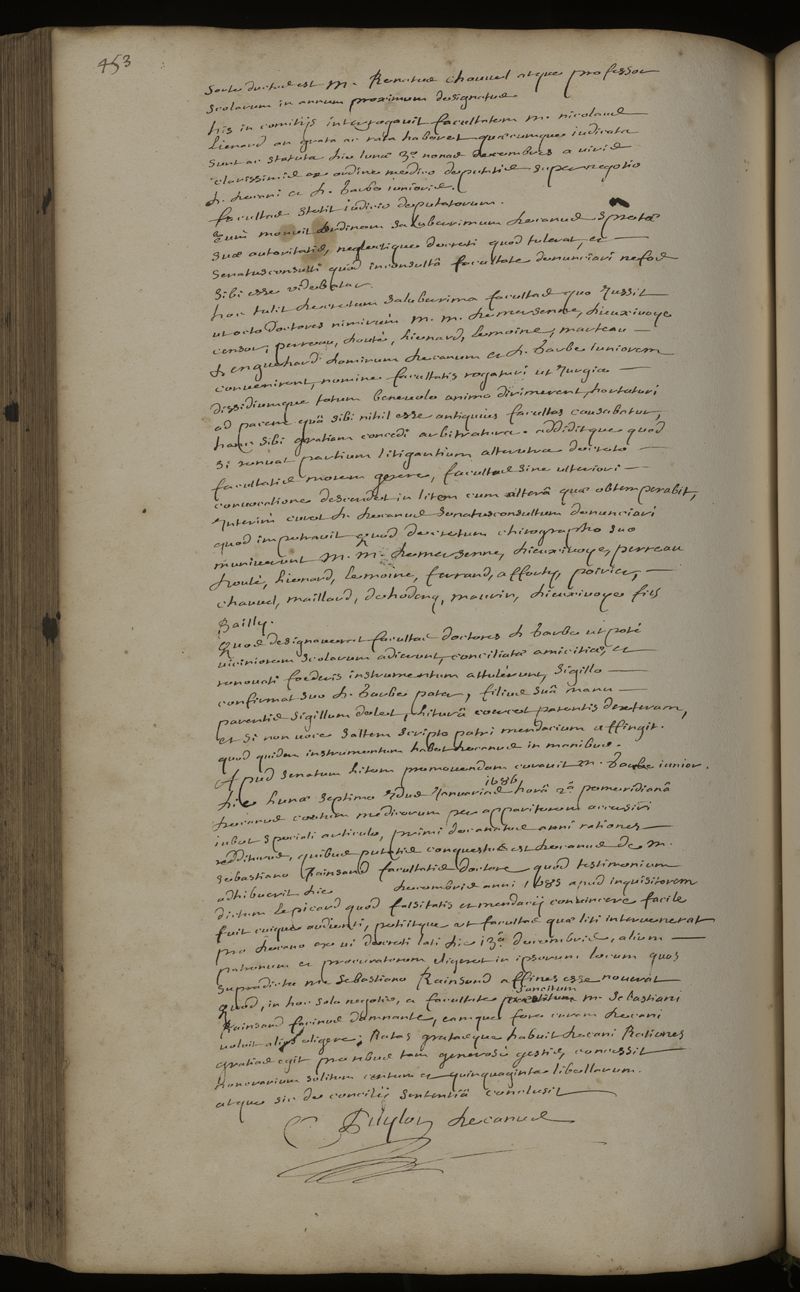 453
Sorte ductus est M. Renatus Chauvel atque professor
scolarum in annum proximum designatus
his in comitiis interrogavit facultatem M. nicolaus
Lienard an grata ac rata haberet quæcumque iudicata
sunt ac statuta die lunæ 3º nonas decembris a viris
clarissimis ex ordine medico deputatis super negotio
D. Decani et D. Barbe iunioris.
facultas stetit iudicio deputatorum.
Tum monuit ordinem saluberrimum decanus spretæ
suæ autoritatis, neglectique decreti quod tulerat, et
senatusconsulti quod inconsultâ facultate denunciari nefas
sibi esse videbatur.
hoc tulit decretum saluberrima facultas quo Jussit
ut octo doctores nimirùm M. M. de mersenne, Dieuxivoye
censor, perreau, douté, Lienard, Lemoine, marteau
D enguehard dominum decanum et D. Barbe iuniorem
convenirent, nomine facultatis rogaturi ut Jurgia
dissidiumque totum benevolo animo dirimerent, hortaturi
ad pacem quâ sibi nihil esse antiquius facultas causabatur,
hanc sibi gratiam concedi arbitratura. addiditque quod
si renuat partium litigantium alterutra decreto
facultatis morem gerere, facultas sine ulteriori
convocatione descendet in litem cum alterâ quæ obtemperabit,
Interim curet D. Decanus senatusconsultum denunciari
quod impetravit quod decretum chirographo suo
muniverunt M. M. De mersenne, Dieuxivoye, perreau
Douté, Lienard, Lemoine, ferrand, afforty, poirier,
Chauvel, maillard, mauvin, Dieuxivoye fils
Bailly.
Quos designaverat facultas doctores D. Barbe ut potè
viciniorem scolarum adierunt, conciliatæ amicitiæ et
renovati foederis instrumentum attulerunt, sigillo
confirmat suo D. Barbe pater, filius suâ manu
parentis sigillum delet, liturâ coercet parentis dexteram,
et si non voce saltem scripto patri mendacium affingit.
quod quidem instrumentum habet decanus in manibus.
Apud senatum litem promovendam curavit M. Barbe iunior.
Die Lunæ septimo Idus Januarias 1686 horâ 2ª pomeridianâ
decanus coetum medicorum per apparitorem accersiri
iubet speciali articulo, primi decanatus anni rationes
redditurus, quibus conquestus est decanus de M.
sebastiano Rainsand facultatis doctore quod testimonium
adhibuerit die decembris anni 1685 apud inquisitorem
dictum Lepicard quod falsitatis et mendacii convincere facile
fuit cuique audienti, petiitque ut facultas quæ liti intervenerat
pro decano ex vi decreti lati die 13ª decembris, alium
patronum et procuratorem eligeret in ipsorum locum quos
supradicto mro Sebastiano Rainsand affines esse noverat
Quod, in hoc solo negotio, a facultate sancitum M. Sebastiani
Rainsand facinus damnante, eamque fore curam decani
voluit alios eligere; Ratas gratasque habuit decani Rationes
gratias egit pro rebus tam generosè gestis, concessit
honorarium solitum centum et quinquaginta libellarum.
atque sic de concilii sententiâ conclusit
C Puylon Decanus